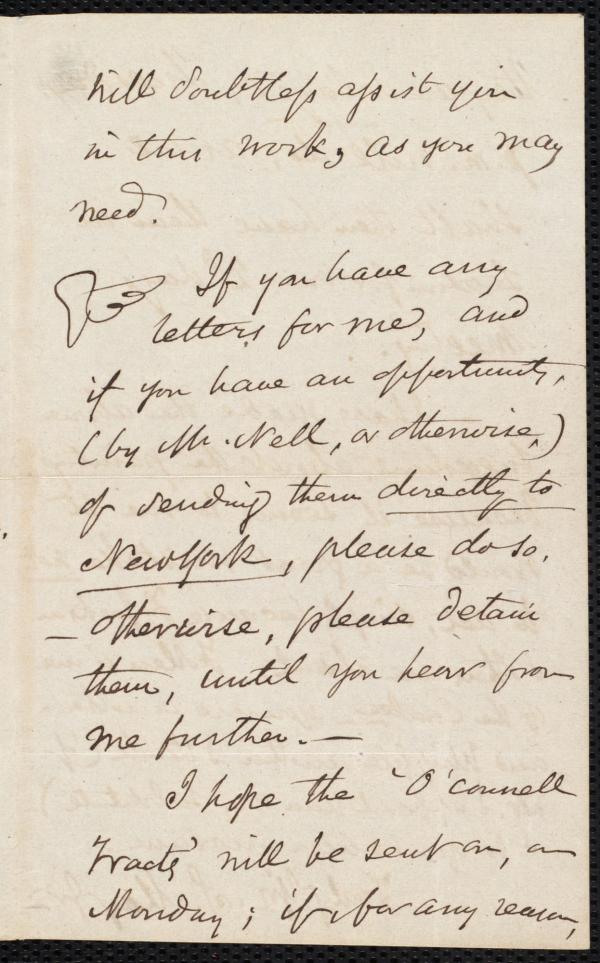 will doubtless assist you
in this work, as you may
need.
☞ If you have any
letters for me, and
if you have an opportunity,
(by Mr. Nell, or otherwise,)
of sending them directly to
New York, please do so.
- otherwise, please detain
them, until you hear from
me further. —
I hope the 'O'connell
Tracts' will be sent on, on
Monday; if, for any reason,